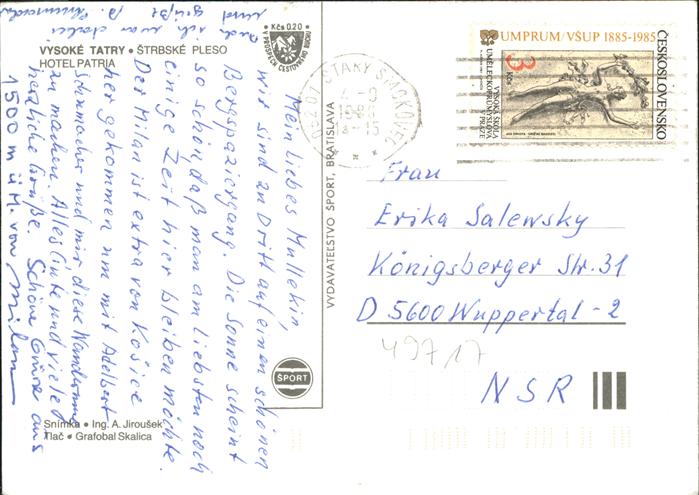 VYSOKÉ TATRY • ŠTRBSKÉ PLESO
HOTEL PATRIA
Kčs 0,20
V PROSPECH CESTOVNÉHO RUCHU
Mein liebes Mullekin,
wir sind zu Dritt auf einen schönen
Bergspaziergang. Die Sonne scheint
so schön, daß man am liebsten noch
einige Zeit hier bleiben möchte.
Der Milan ist extra von Košice
her gekommen um mit Adelbert
Schumacher und mir diese Wanderung
zu machen. Alles Gute und viele
herzliche Grüße. Schöne Grüße aus
1500 m ü. M. von Milan
Auch ich war dabei
und grüße
Snímka • Ing. A. Jiroušek
Tlač • Grafobal Skalica
VYDAVATEĽSTVO ŠPORT, BRATISLAVA
ŠPORT
STARÝ SMOKOVEC
UMPRUM/VŠUP 1885-1985
ČESKOSLOVENSKO
3 Kčs
VYSOKÁ ŠKOLA
UMĚLECKOPRŮMYSLOVÁ
V PRAZE
Frau
Erika Salewsky
Königsberger Str. 31
D 5600 Wuppertal-2
49717
NSR